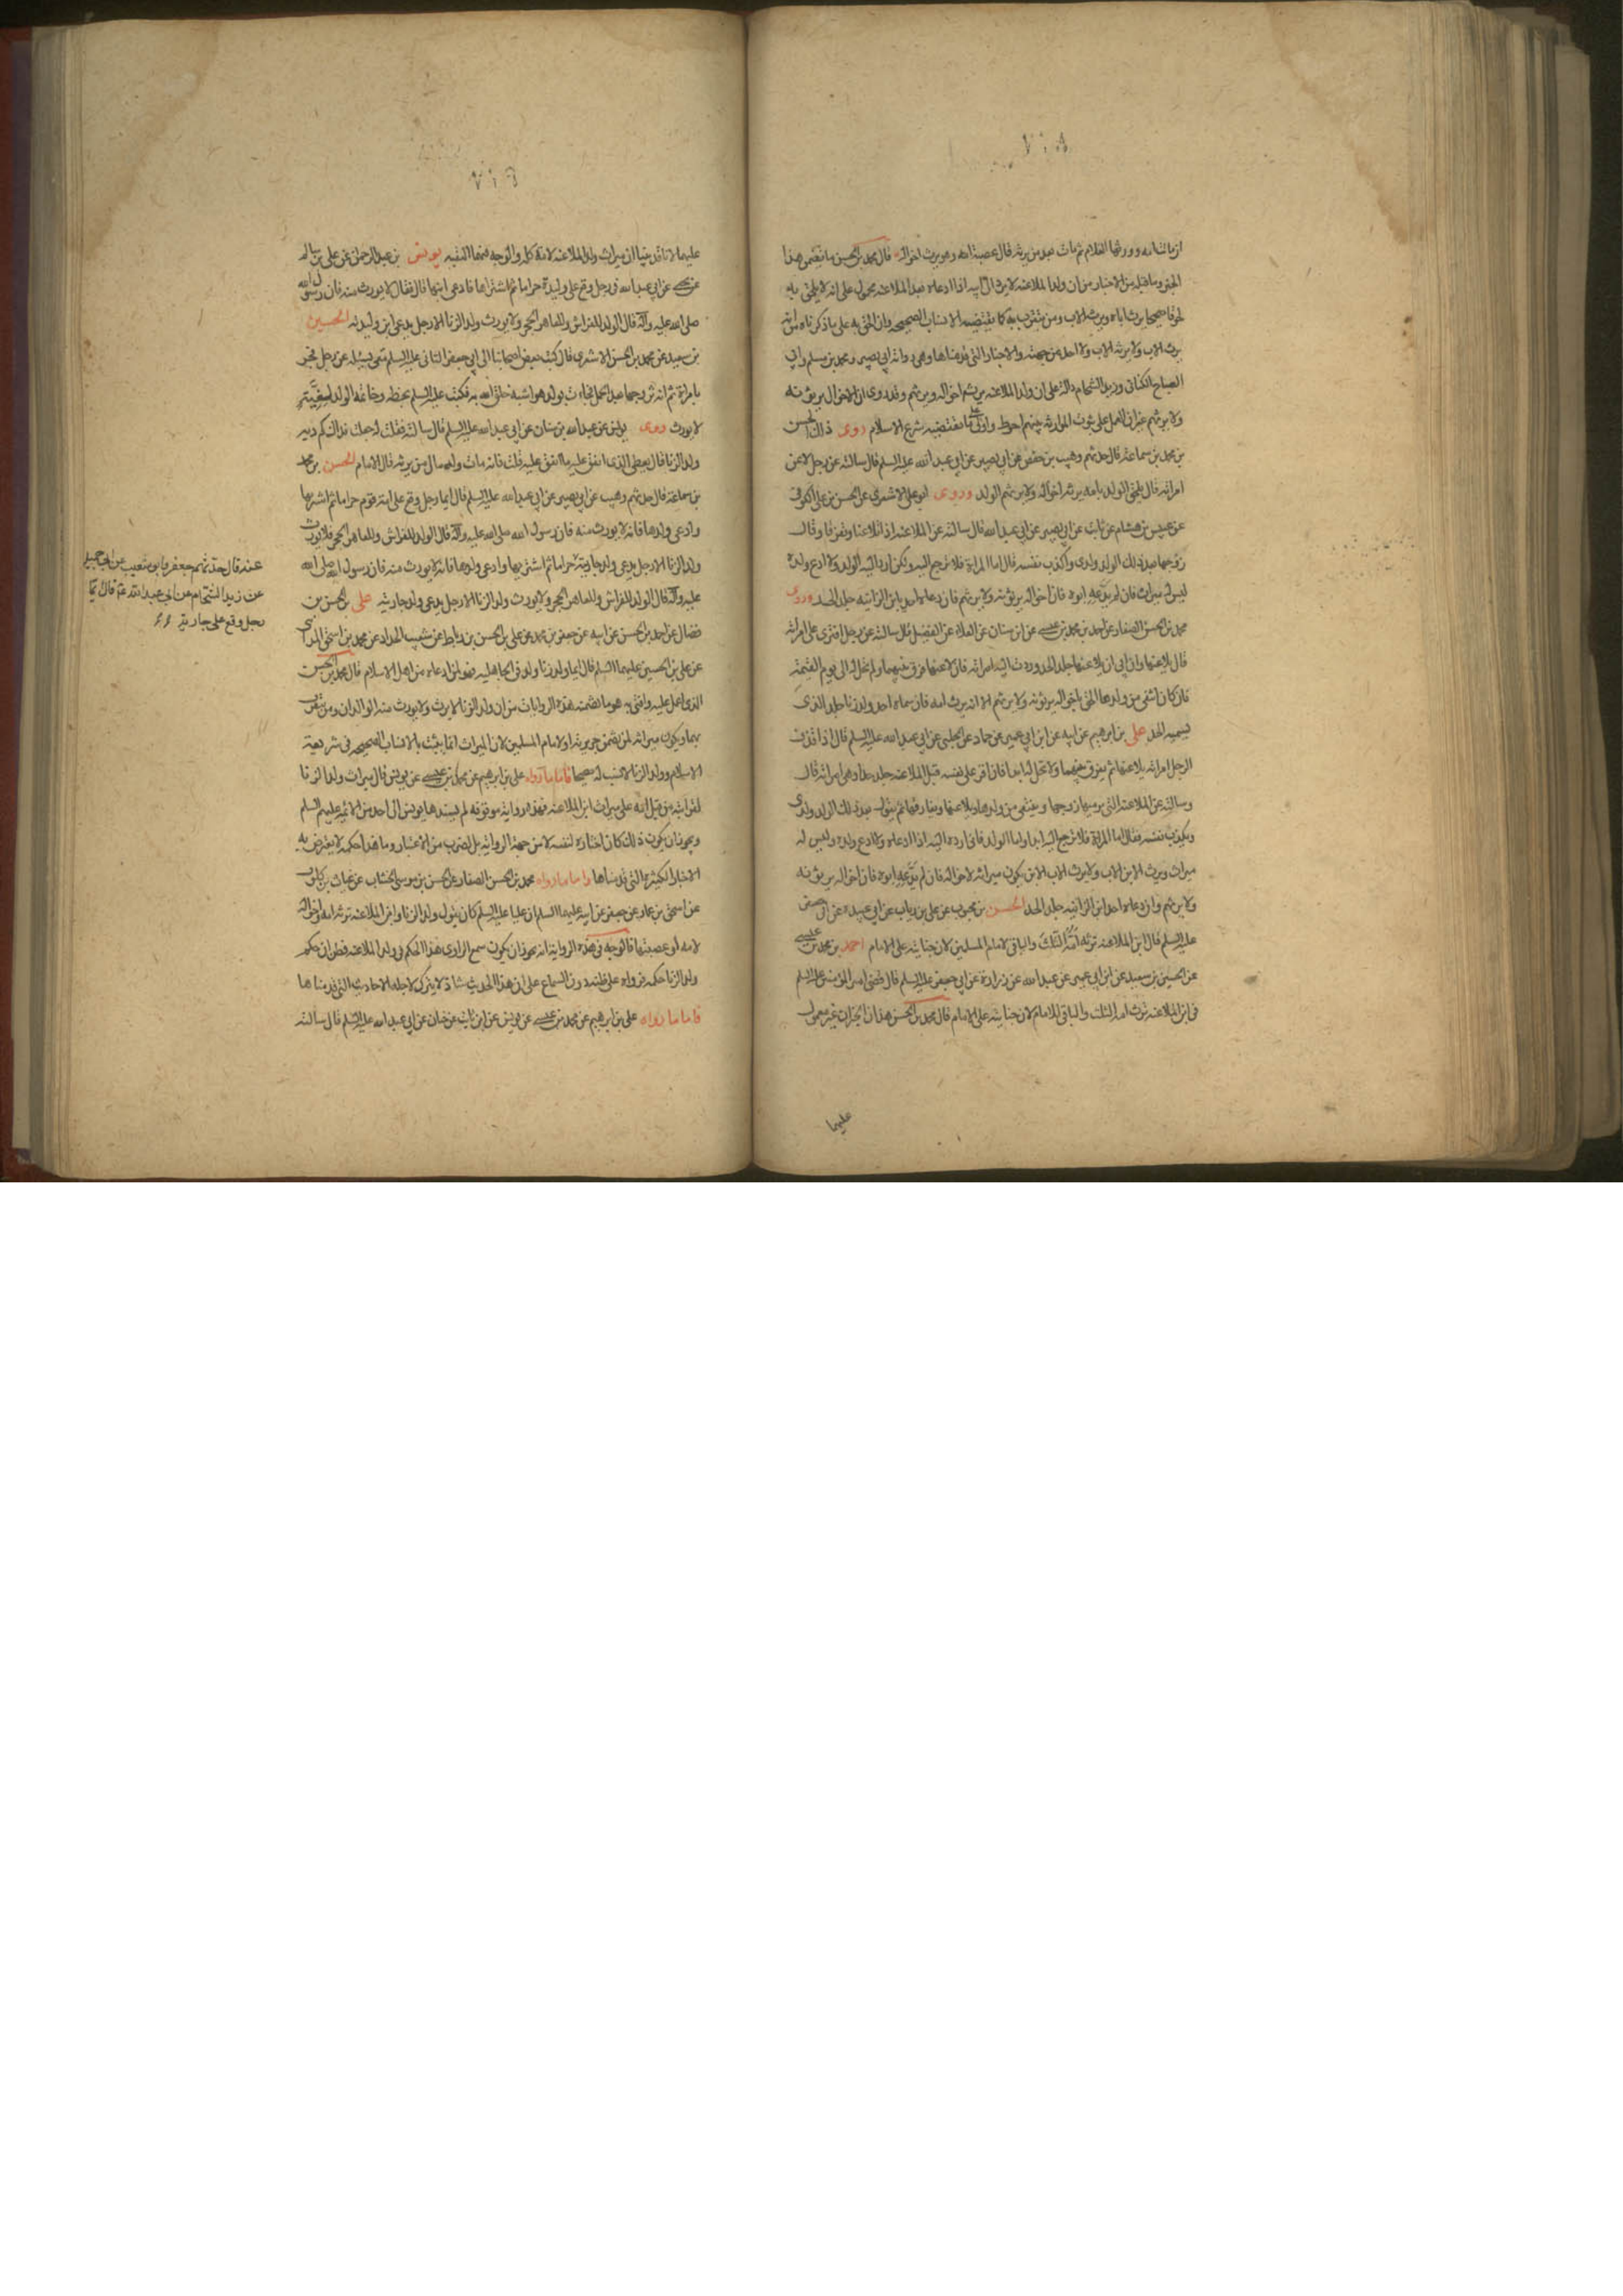 ان ماتت امه وورثها الغلام ثم مات بعد من يرثه قال عصبة امه وهو يرث اخواله قال محمد بن الحسن ما تضمن هذا
الخبر وما قبله من الاخبار من ان ولد الملاعنة لا يرث اباه اذا ادعاه بعد الملاعنة محمول على انه لا يلحق به
لحوقا صحيحا يرث اباه ويرثه الاب ومن يتقرب به كما يقتضيه الانساب الصحيحة وان الحق به على ما ذكرناه من انه
يرث الاب ولا يرثه الاب ولا احد من جهته والاخبار التي قدمناها وهي رواية ابي بصير ومحمد بن مسلم وابي
الصباح الكناني وزيد الشحام دالة على ان ولد الملاعنة يرثه اخواله ويرثهم وقد روى ان الاخوال يرثونه
ولا يرثهم غير ان العمل على ثبوت الموارثة بينهم احوط واولى على ما تقتضيه شرع الاسلام روى ذلك الحسن
بن محمد بن سماعة قال حدثهم وهيب بن حفص عن ابي بصير عن ابي عبد الله عليه السلم قال سالته عن رجل لاعن
امراته قال يلحق الولد بامه يرثه اخواله ولا يرثهم الولد وروى ابو علي الاشعري عن الحسن بن علي الكوفي
عن عبيس بن هشام عن ثابت عن ابي بصير عن ابي عبد الله قال سالته عن الملاعنة اذا تلاعنا وتفرقا وقال
زوجها بعد ذلك الولد ولدي واكذب نفسه قال اما المراة فلا ترجع اليه ولكن ارد اليه الولد ولا ادع ولده
ليس له ميراث فان لم يدعه ابوه فان اخواله يرثونه ولا يرثهم فان دعاه احد يا بن الزانيه جلد الحد وروى
محمد بن الحسن الصفار عن احمد بن محمد بن عيسى عن ابن سنان عن العلاء عن الفضيل قال سالته عن رجل افترى على امراته
قال يلاعنها وان ابى ان يلاعنها جلد الحد وردت اليه امراته فان لاعنها فرق بينهما ولم تحل له الى يوم القيمة
فان كان انتفى من ولدها الحق باخواله يرثونه ولا يرثهم الا انه يرث امه فان سماه احد ولد زنا جلد الذي
يسميه الحد علي بن ابرهيم عن ابيه عن ابن ابي عمير عن حماد عن الحلبي عن ابي عبد الله عليه السلم قال اذا قذف
الرجل امراته يلاعنها ثم يفرق بينهما ولا تحل له ابدا فان اقر على نفسه قبل الملاعنة جلد حدا وهي امراته قال
وسالته عن الملاعنة التي يرميها زوجها وينتفي من ولدها ويلاعنها ويفارقها ثم يقول بعد ذلك الولد ولدي
ويكذب نفسه فقال اما المراة فلا ترجع اليه ابدا واما الولد فاني ارده اليه اذا ادعاه ولا ادع ولده وليس له
ميراث ويرث الابن الاب ولا يرث الاب الابن يكون ميراثه لاخواله فان لم يدعه ابوه فان اخواله يرثونه
ولا يرثهم وان دعاه احد ابن الزانيه جلد الحد الحسن بن محبوب عن علي بن رياب عن ابي عبيده عن ابي جعفر
عليه السلم قال ابن الملاعنه ترثه امه الثلث والباقي لامام المسلمين لان جنايته على الامام احمد بن محمد بن عيسى
عن الحسين بن سعيد عن ابن ابي عمير عن عبد الله عن زرارة عن ابي جعفر عليه السلم قال قضى امير المؤمنين عليه السلم
في ابن الملاعنه ترث امه الثلث والباقي للامام لان جنايته على الامام قال محمد بن الحسن هذان الخبران غير معمول
عليهما
عليهما لانا قد بينا ان ميراث ولد الملاعنه لامه كله والوجه فيهما التقيه يونس بن عبد الرحمن عن علي بن سالم
عن يحيى عن ابي عبد الله في رجل وقع على وليدة حراما ثم اشتراها فادعى ابنها قال فقال لا يورث منه فان رسول الله
صلى الله عليه وآله قال الولد للفراش وللعاهر الحجر ولا يورث ولد الزنا الا رجل يدعي ابن وليدته الحسين
بن سعيد عن محمد بن الحسن الاشعري قال كتب بعض اصحابنا الى ابي جعفر الثاني عليه السلم معي يسئله عن رجل فجر
بامراة ثم انه تزوجها بعد الحمل فجاءت بولد هو اشبه خلق الله به فكتب عليه السلم بخطه وخاتمه الولد لغيّة
لا يورث روى يونس عن عبد الله بن سنان عن ابي عبد الله عليه السلم قال سالته فقلت له جعلت فداك كم دية
ولد الزنا قال يعطى الذي انفق عليه ما انفق عليه قلت فانه مات وله مال من يرثه قال الامام الحسن بن محمد
بن سماعة قال حدثهم وهيب عن ابي بصير عن ابي عبد الله عليه السلم قال ايما رجل وقع على امة قوم حراما ثم اشتريها
وادعى ولدها فانه لا يورث منه فان رسول الله صلى الله عليه وآله قال الولد للفراش وللعاهر الحجر فلا يورث
ولد الزنا الا رجل يدعي ولد جاريته حراما ثم اشتريها وادعى ولدها فانه لا يورث منه فان رسول الله صلى الله
عليه وآله قال الولد للفراش وللعاهر الحجر ولا يورث ولد الزنا الا رجل يدعي ولد جاريته علي بن الحسن بن
فضال عن احمد بن الحسن عن ابيه عن جعفر بن محمد عن علي بن الحسن بن رباط عن شعيب الحداد عن محمد بن اسحق المدائني
عن علي بن الحسين عليهما السلم قال ايما ولد زنا ولد في الجاهليه فهو لمن ادعاه من اهل الاسلام قال محمد بن الحسن
الذي اعمل عليه وافتي به هو ما تضمنه هذه الروايات من ان ولد الزنا لا يرث ولا يورث منه الوالدان ومن يتقرب
بهما ويكون ميراثه لمن يضمن جريرته او لامام المسلمين لان الميراث انما يثبت بالانساب الصحيحه في شريعة
الاسلام وولد الزنا لا نسب له صحيحا فاما ما رواه علي بن ابرهيم عن محمد بن عيسى عن يونس قال ميراث ولد الزنا
لقراباته من قبل امه على ميراث ابن الملاعنه فهذه رواية موقوفه لم يسندها يونس الى احد من الائمة عليهم السلم
ويجوز ان يكون ذلك كان اختاره لنفسه لا من جهة الرواية بل لضرب من الاعتبار وما هذا حكمه لا يعترض به
الاخبار الكثيرة التي قدمناها واما ما رواه محمد بن الحسن الصفار عن الحسن بن موسى الخشاب عن غياث بن كلوب
عن اسحق بن عمار عن جعفر عن ابيه عليهما السلم ان عليا عليه السلم كان يقول ولد الزنا وابن الملاعنه ترثه امه واخواله
لامه او عصبتها فالوجه في هذه الرواية انه يجوز ان يكون سمع الراوي هذا الحكم في ولد الملاعنه فظن ان حكم
ولد الزنا حكمه فرواه على ظنه دون السماع على ان هذا الحديث شاذ لا يترك لاجله الاحاديث التي قدمناها
فاما ما رواه علي بن ابرهيم عن محمد بن عيسى عن يونس عن ابن ثابت عن حنان عن ابي عبد الله عليه السلم قال سالته
عنه قال حدثهم جعفر وابو شعيب عن ابي جميلة
عن زيد الشحام عن ابي عبد الله عم قال ايما
رجل وقع على جارية